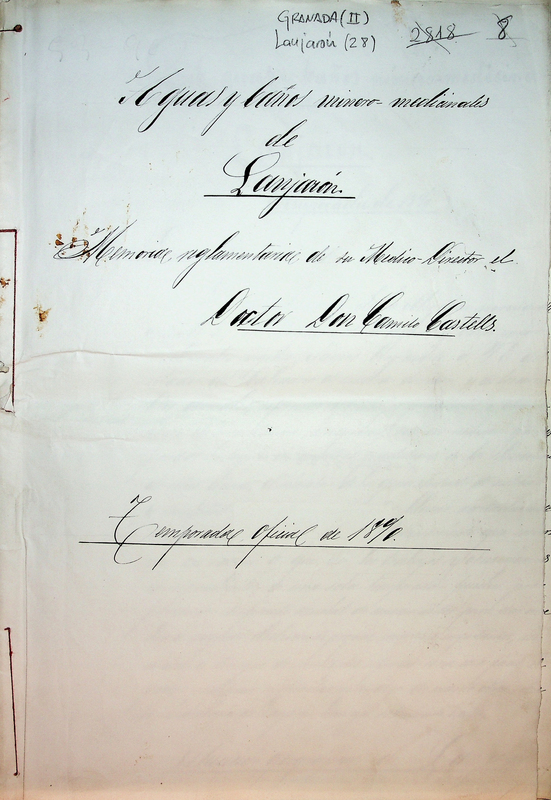 GRANADA (II)
Lanjarón (28)
2818 8
Aguas y baños minero-medicinales
de
Lanjarón.
Memoria reglamentaria de su Medico-Director el
Doctor Don Camilo Castells.
Temporada oficial de 1890.